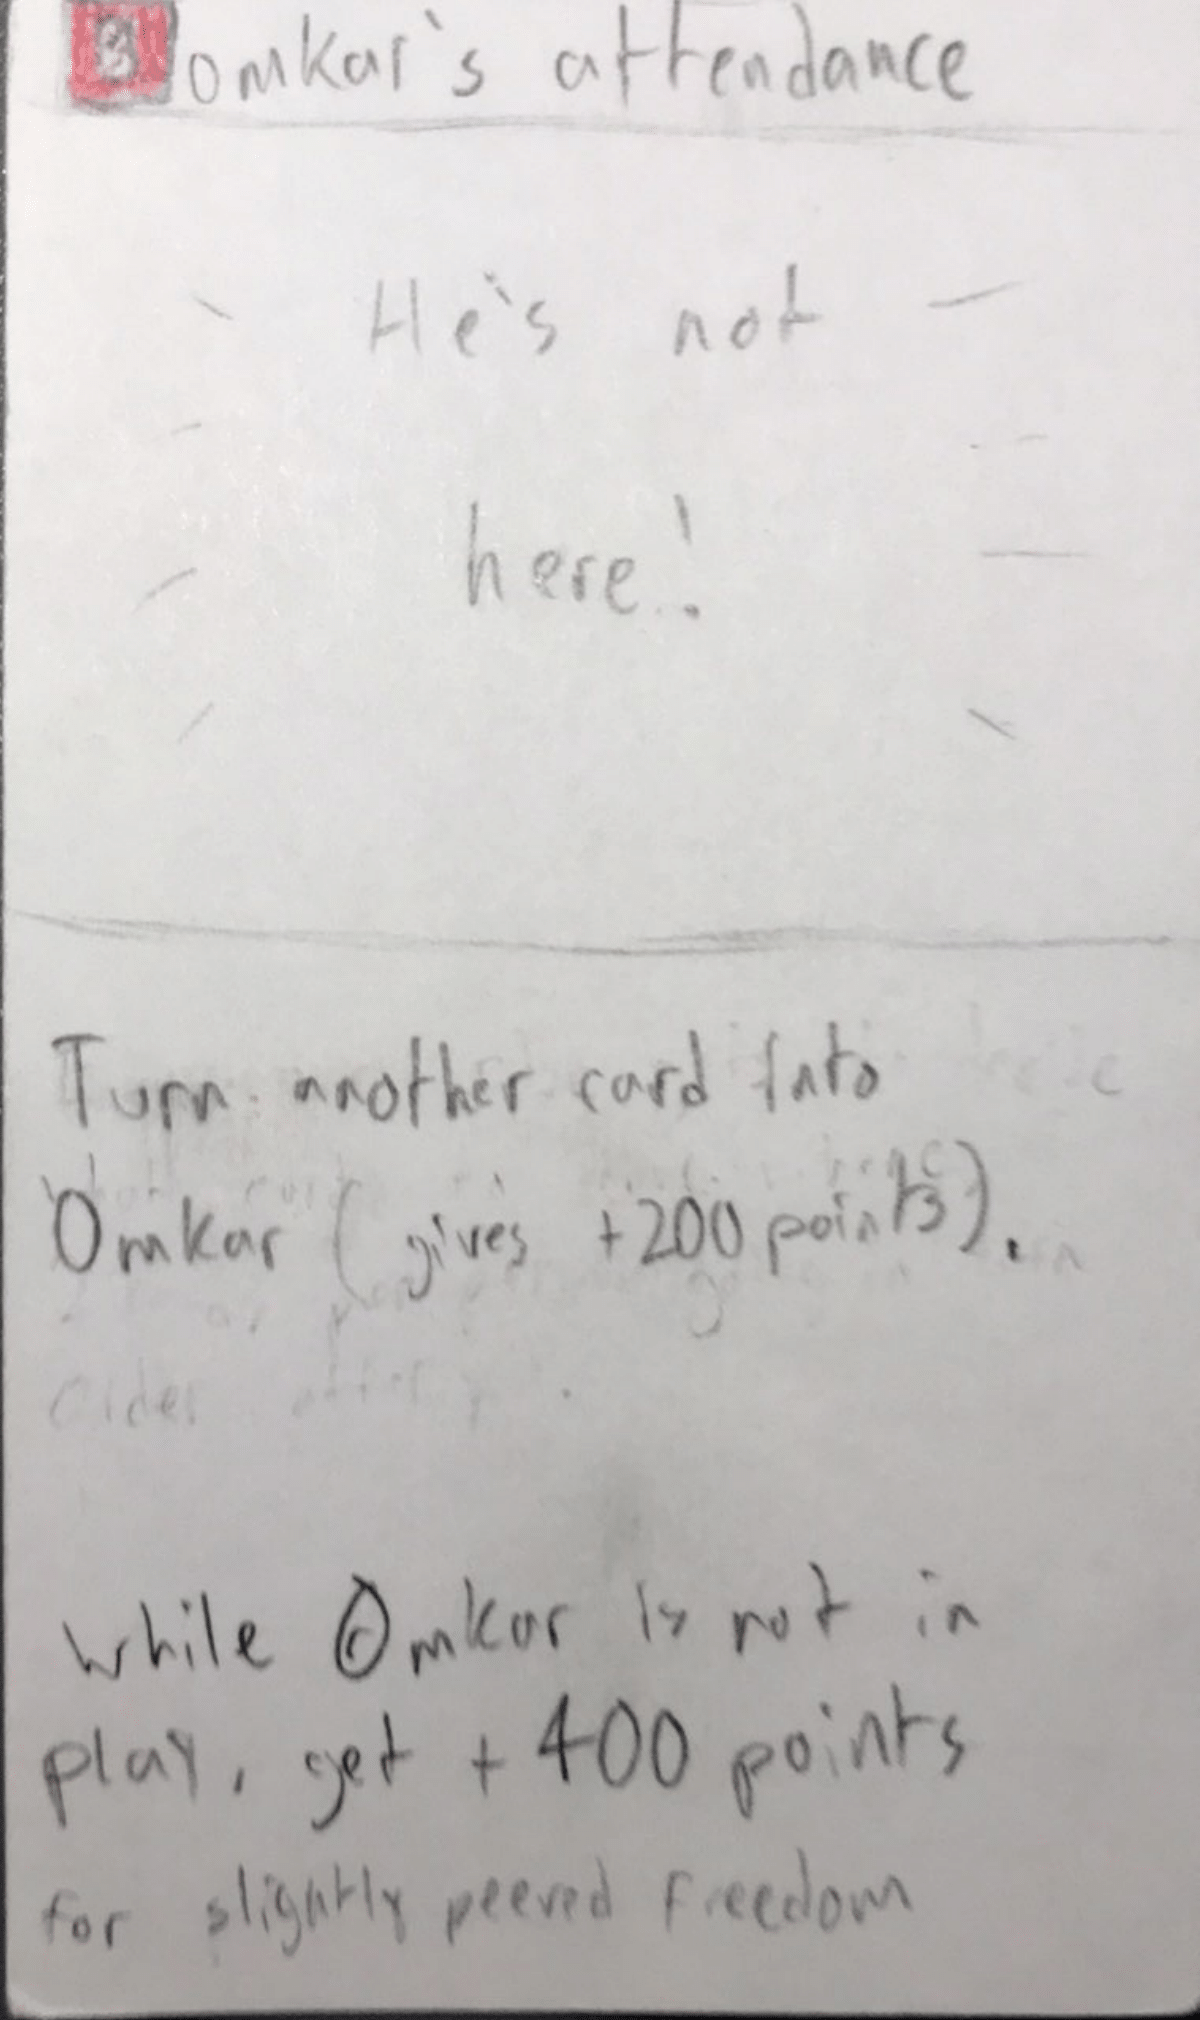 omkar's attendance
He's not
here!
Turn another card into
Omkar (gives +200 points).
while Omkar is not in
play, get +400 points
for slightly peeved freedom